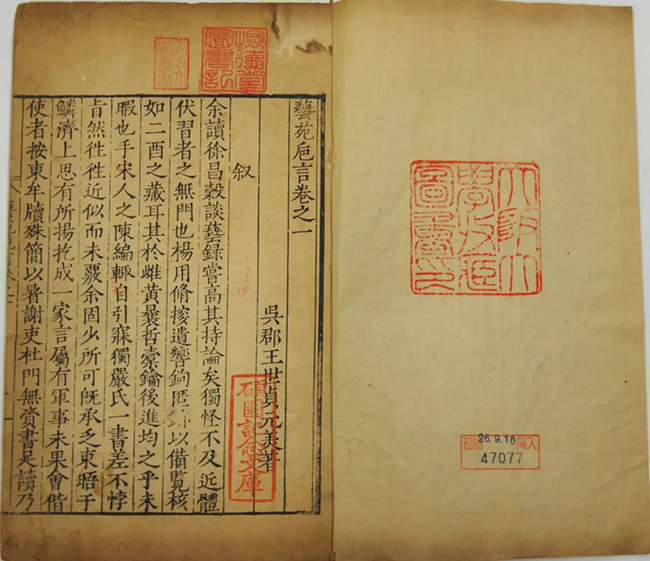 大阪大
學附屬
圖書印
26.9.10
47077
懷德堂
圖書記
藝苑卮言卷之一
吳郡王世貞元美著
碩園記念文庫
叙
余讀徐昌穀談藝録嘗高其持論矣獨怪不及近體
伏習者之無門也楊用脩搜遺響鉤匿跡以備覽核
如二酉之藏耳其於雌黄曩哲橐鑰後進均之乎未
暇也手宋人之陳編輒自引寐獨嚴氏一書差不悖
旨然徃徃近似而未覈余固少所可旣承乏東晤于
鱗濟上思有所揚扢成一家言屬有軍事未果會偕
使者按東牟牘殊簡以暑謝吏杜門無賫書足讀乃